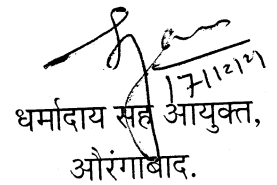 17/12/21
धर्मादाय सह आयुक्त,
औरंगाबाद.